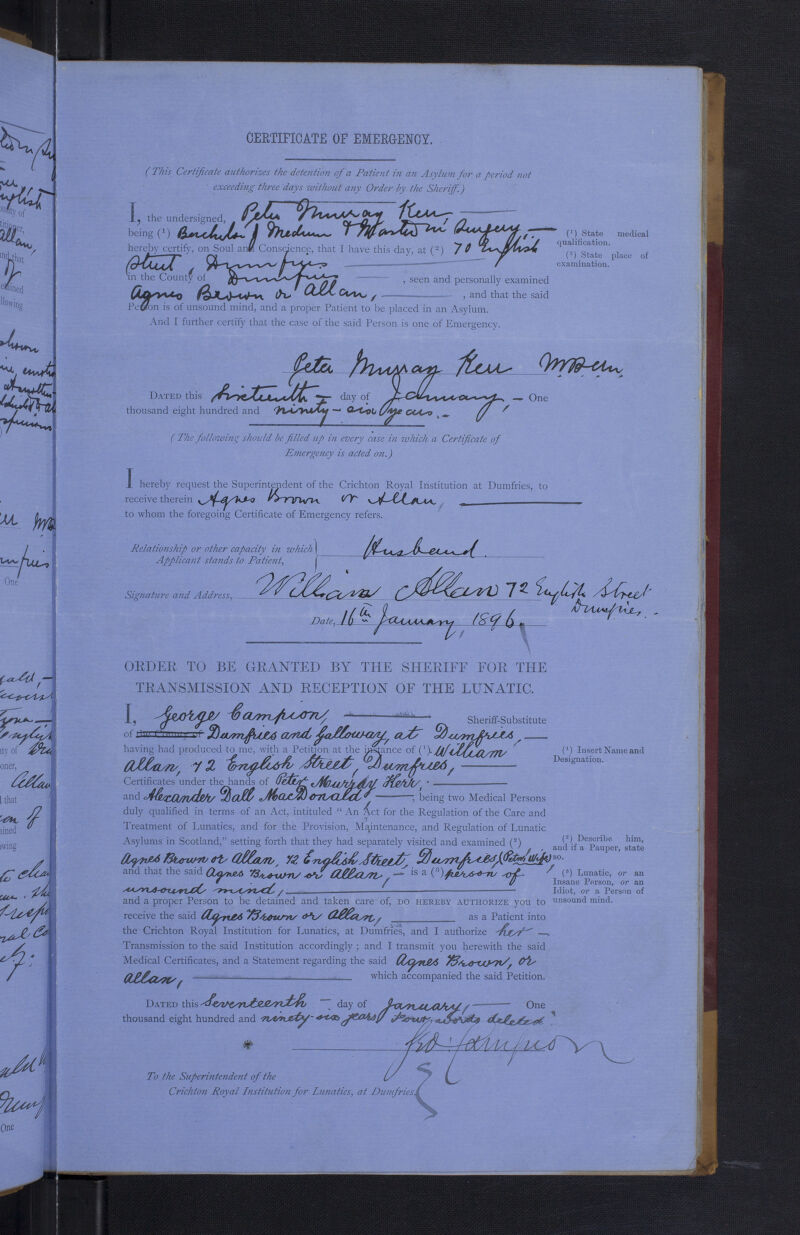 CERTIFICATE OF EMERGENCY.
(This Certificate authorizes the detention of a Patient in an Asylum for a period not
exceeding three days without any Order by the Sheriff.)
I, the undersigned, Peter Murray Kerr
being (¹) Bachelor of Medicine & Master in Surgery —
hereby certify, on Soul and Conscience, that I have this day, at (²) 70 English
Street, Dumfries
in the County of Dumfries, seen and personally examined
Agnes Brown or Allan, , and that the said
Person is of unsound mind, and a proper Patient to be placed in an Asylum.
And I further certify that the case of the said Person is one of Emergency.
(¹) State medical
qualification.
(²) State place of
examination.
Peter Murray Kerr M.B. C.M.
DATED this Sixteenth — day of January, — One
thousand eight hundred and ninety-six years.—
(The following should be filled up in every case in which a Certificate of
Emergency is acted on.)
I hereby request the Superintendent of the Crichton Royal Institution at Dumfries, to
receive therein Agnes Brown or Allan,
to whom the foregoing Certificate of Emergency refers.
Relationship or other capacity in which
Applicant stands to Patient, Husband.
Signature and Address, William Allan 72 English Street
Dumfries.
Date, 16th January, 1896.
ORDER TO BE GRANTED BY THE SHERIFF FOR THE
TRANSMISSION AND RECEPTION OF THE LUNATIC.
I, George Campion, Sheriff-Substitute
of the County of Dumfries and Galloway, at Dumfries, —
having had produced to me, with a Petition at the instance of (¹) William
Allan, 72 English Street, Dumfries,
Certificates under the hands of Peter Murray Kerr,
and Alexander Dall MacDonald, being two Medical Persons
duly qualified in terms of an Act, intituled "An Act for the Regulation of the Care and
Treatment of Lunatics, and for the Provision, Maintenance, and Regulation of Lunatic
Asylums in Scotland," setting forth that they had separately visited and examined (²)
Agnes Brown or Allan, 72 English Street, Dumfries, (Petrs Wife)
and that the said Agnes Brown or Allan, — is a (³) person of
unsound mind,
and a proper Person to be detained and taken care of, DO HEREBY AUTHORIZE you to
receive the said Agnes Brown or Allan, as a Patient into
the Crichton Royal Institution for Lunatics, at Dumfries, and I authorize her —
Transmission to the said Institution accordingly; and I transmit you herewith the said
Medical Certificates, and a Statement regarding the said Agnes Brown, or
Allan, which accompanied the said Petition.
(¹) Insert Name and
Designation.
(²) Describe him,
and if a Pauper, state
so.
(³) Lunatic, or an
Insane Person, or an
Idiot, or a Person of
unsound mind.
DATED this Seventeenth — day of January, — One
thousand eight hundred and ninety-six years, Four words deleted.
Geo: Campion
To the Superintendent of the
Crichton Royal Institution for Lunatics, at Dumfries.